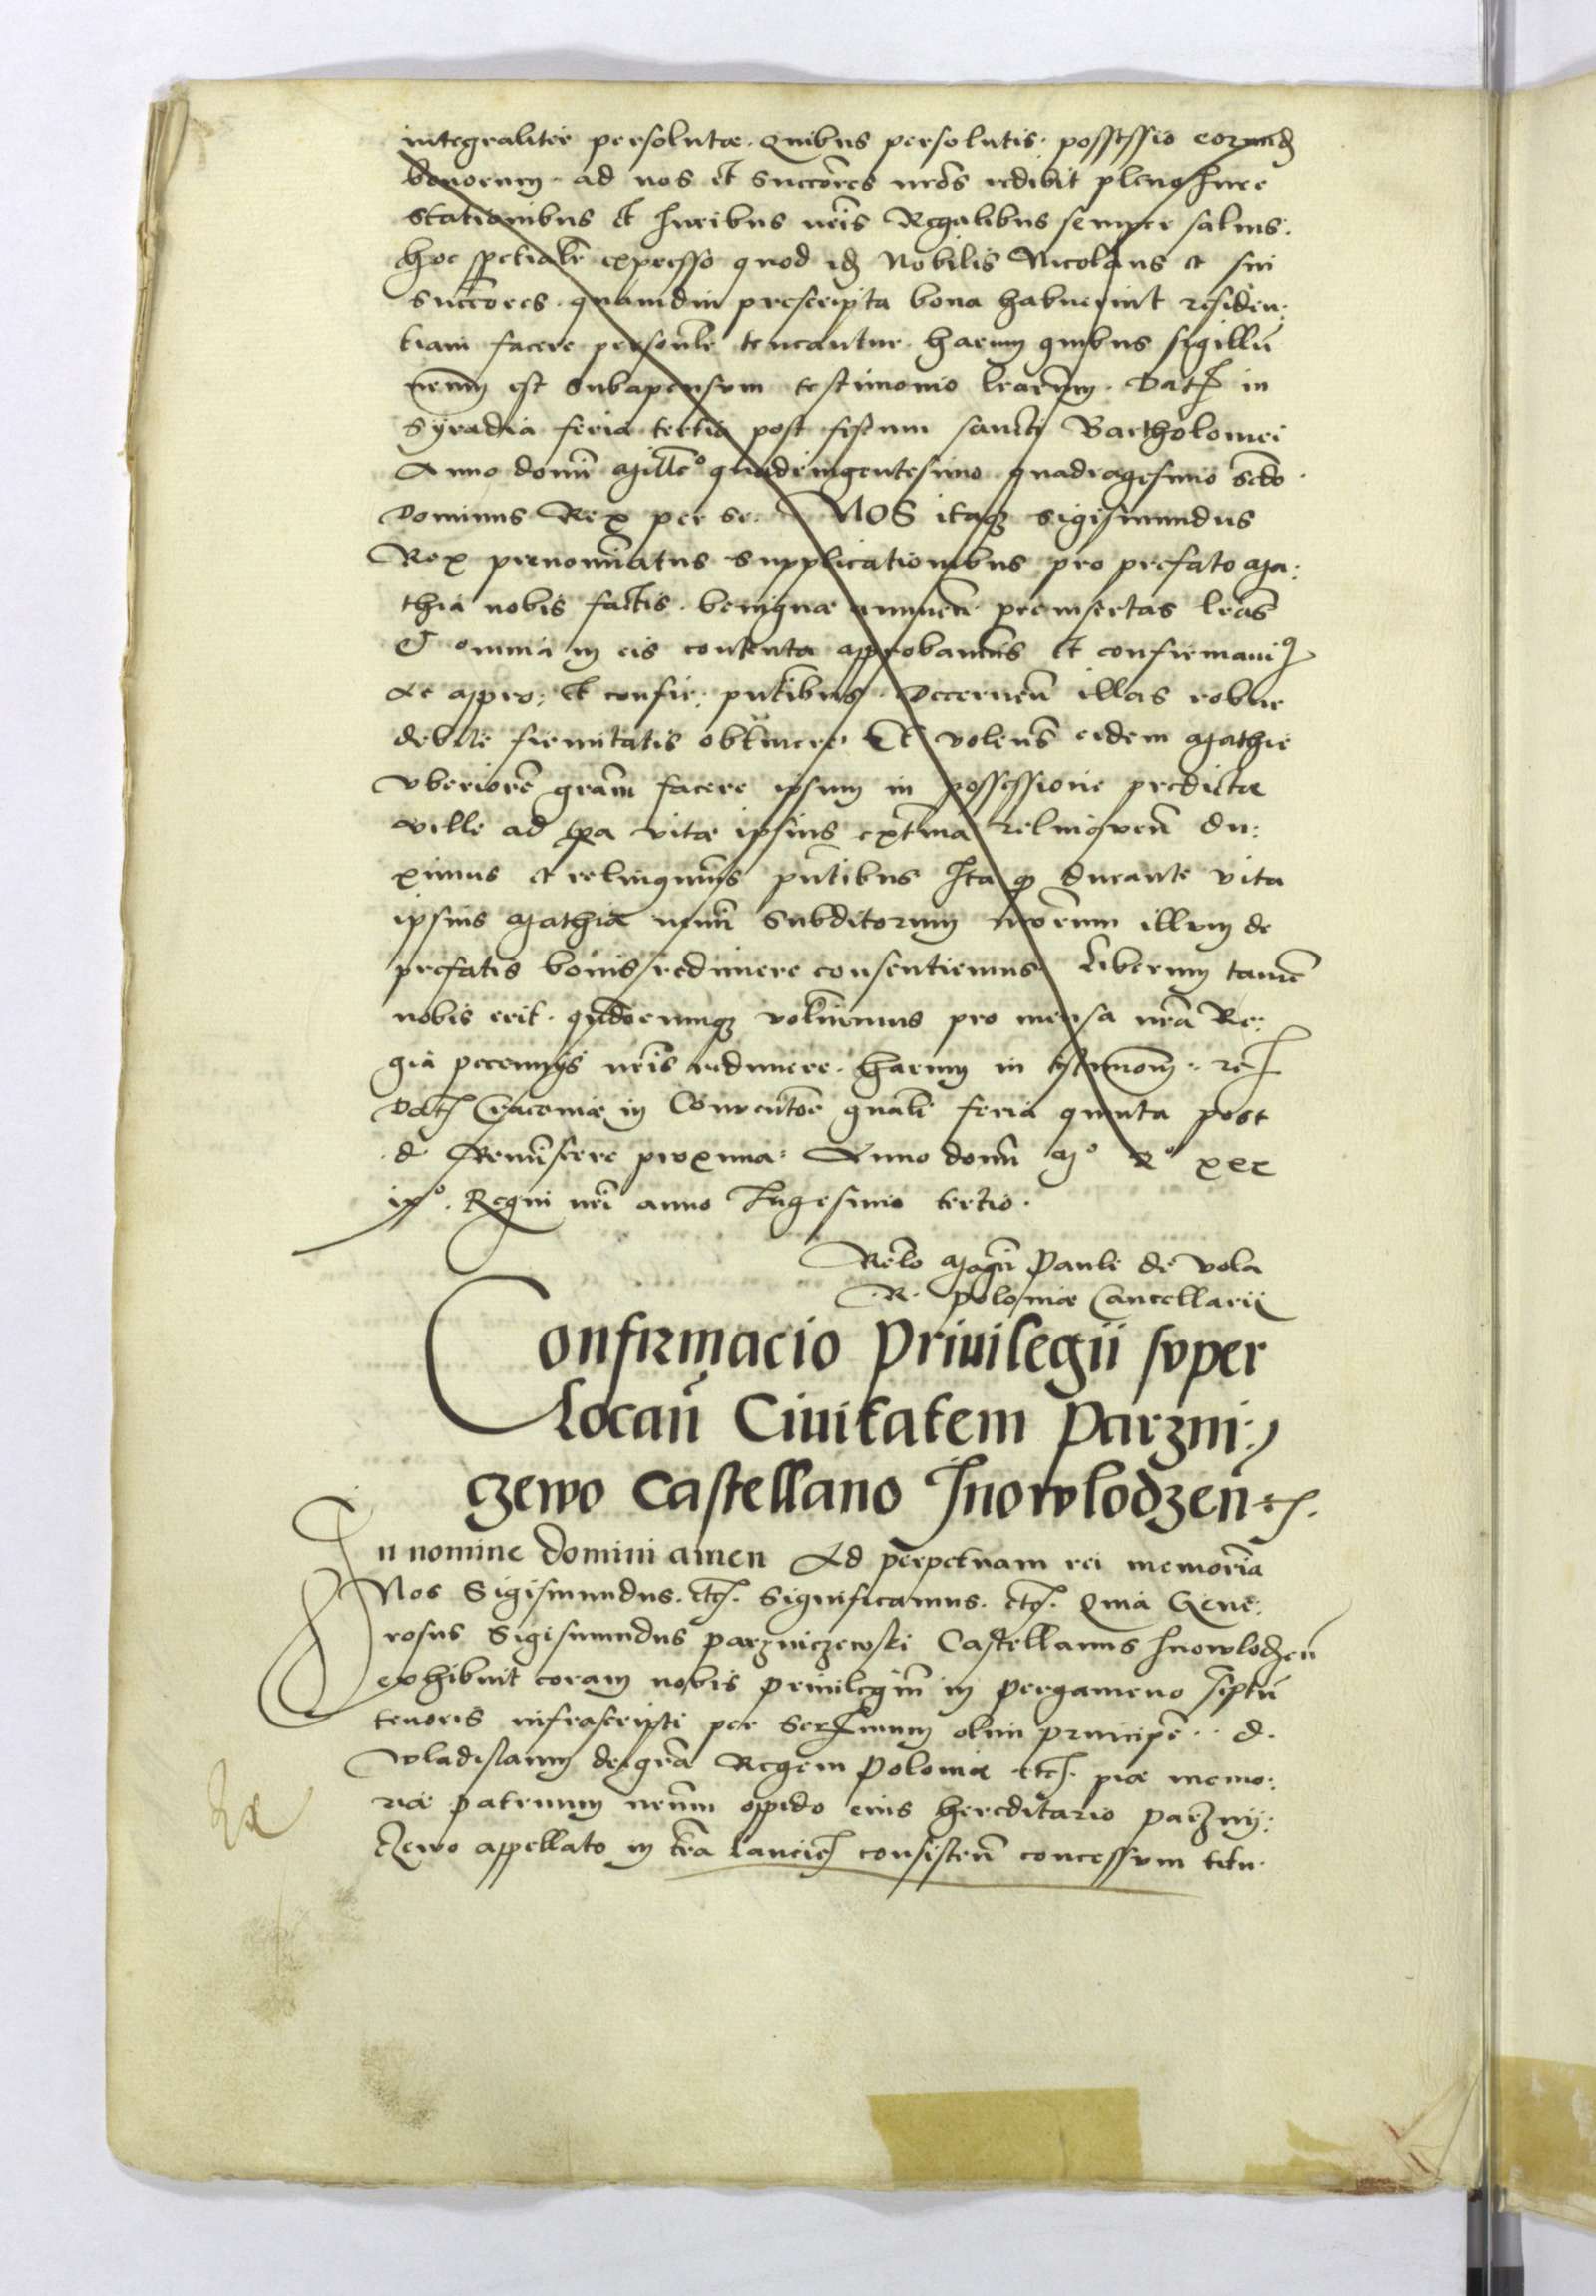 integraliter persolutae. Quibus persolutis. possessio eorunđ
bonorum. ad nos et succōres nrōs redibit pleno Jure
stationibus et Juribus nrīs Regalibus semper saluis.
hoc spetialr̄ expresso quod id̄ Nobilis Nicolaus et sui
succōres. quamdiu prescripta bona habuerint residen:
tiam facere personlr̄ teneantur. harum quibus sigillū
nrum̄ est subapensum testimonio lrarum̄. Dat̄ in
Syradia feria tertia post festum sancti Bartholomei
Anno domī Millo quadringentesimo quadragesimo scdo.
Dominus Rex per se. NOS itaqꝫ Sigismundus
Rex prenomīatus supplicationibus pro prefato Ma:
thia nobis factis. benignae annuen̄ preinsertas lrās
Et omnia in eis contenta approbauimus et confirmauiꝰ
Ac appro: et confir: pn̄tibus. Decernen̄ illas robur
debitae firmitatis obtinere. Et volens̄ eidem Mathie
vberiorē gratiam facere ipsum in possessione predicta
ville ad tp̄a vitae ipsius extrema relinquen̄ du:
ximus et relinquimus pn̄tibus Ita qꝫ durante vita
ipsius Mathiae nemī subditorum nrōrum illum de
prefatis bonis redimere consentiemus. Liberum tamē
nobis erit. qn̄docunqꝫ voluerimus pro mensa nrā Re:
gia pecunijs nrīs redimere. harum in testimoniū. rc̄
Dat̄ Cracouiae in Conuentōe gnāli feria quinta post
d. Reminiscere proxima: Anno domī Mo Qo xxx
ixo. Regni nrī anno trigesimo tertio.
Relō Magcī Pauli de vola
.R. Poloniae Cancellarij
Confirmacio Priuilegii svper
Locan̄ Ciuitatem Parzni:
czewo Castellano Jnowlodzen̄ rc̄.
In nomine domini amen Ad perpetuam rei memoriā
Nos Sigismundus. etc̄. Significamus. etc̄. Quia Gene:
rosus Sigismundus parzniczewski Castellanus Jnowlodzen̄
exhibuit coram nobis priuilegiū in pergameno scriptū
tenoris infrascripti per Serᵐum olim principē .. d.
Wladislaum dei grā Regem Poloniae etc̄. piae memo:
riae patruum nrum̄ oppido eius hereditario parzny:
czewo appellato in trā Lancic̄ consisten̄ concessum titu.